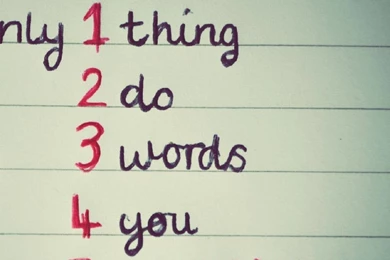 nly 1 thing
2 do
3 words
4 you